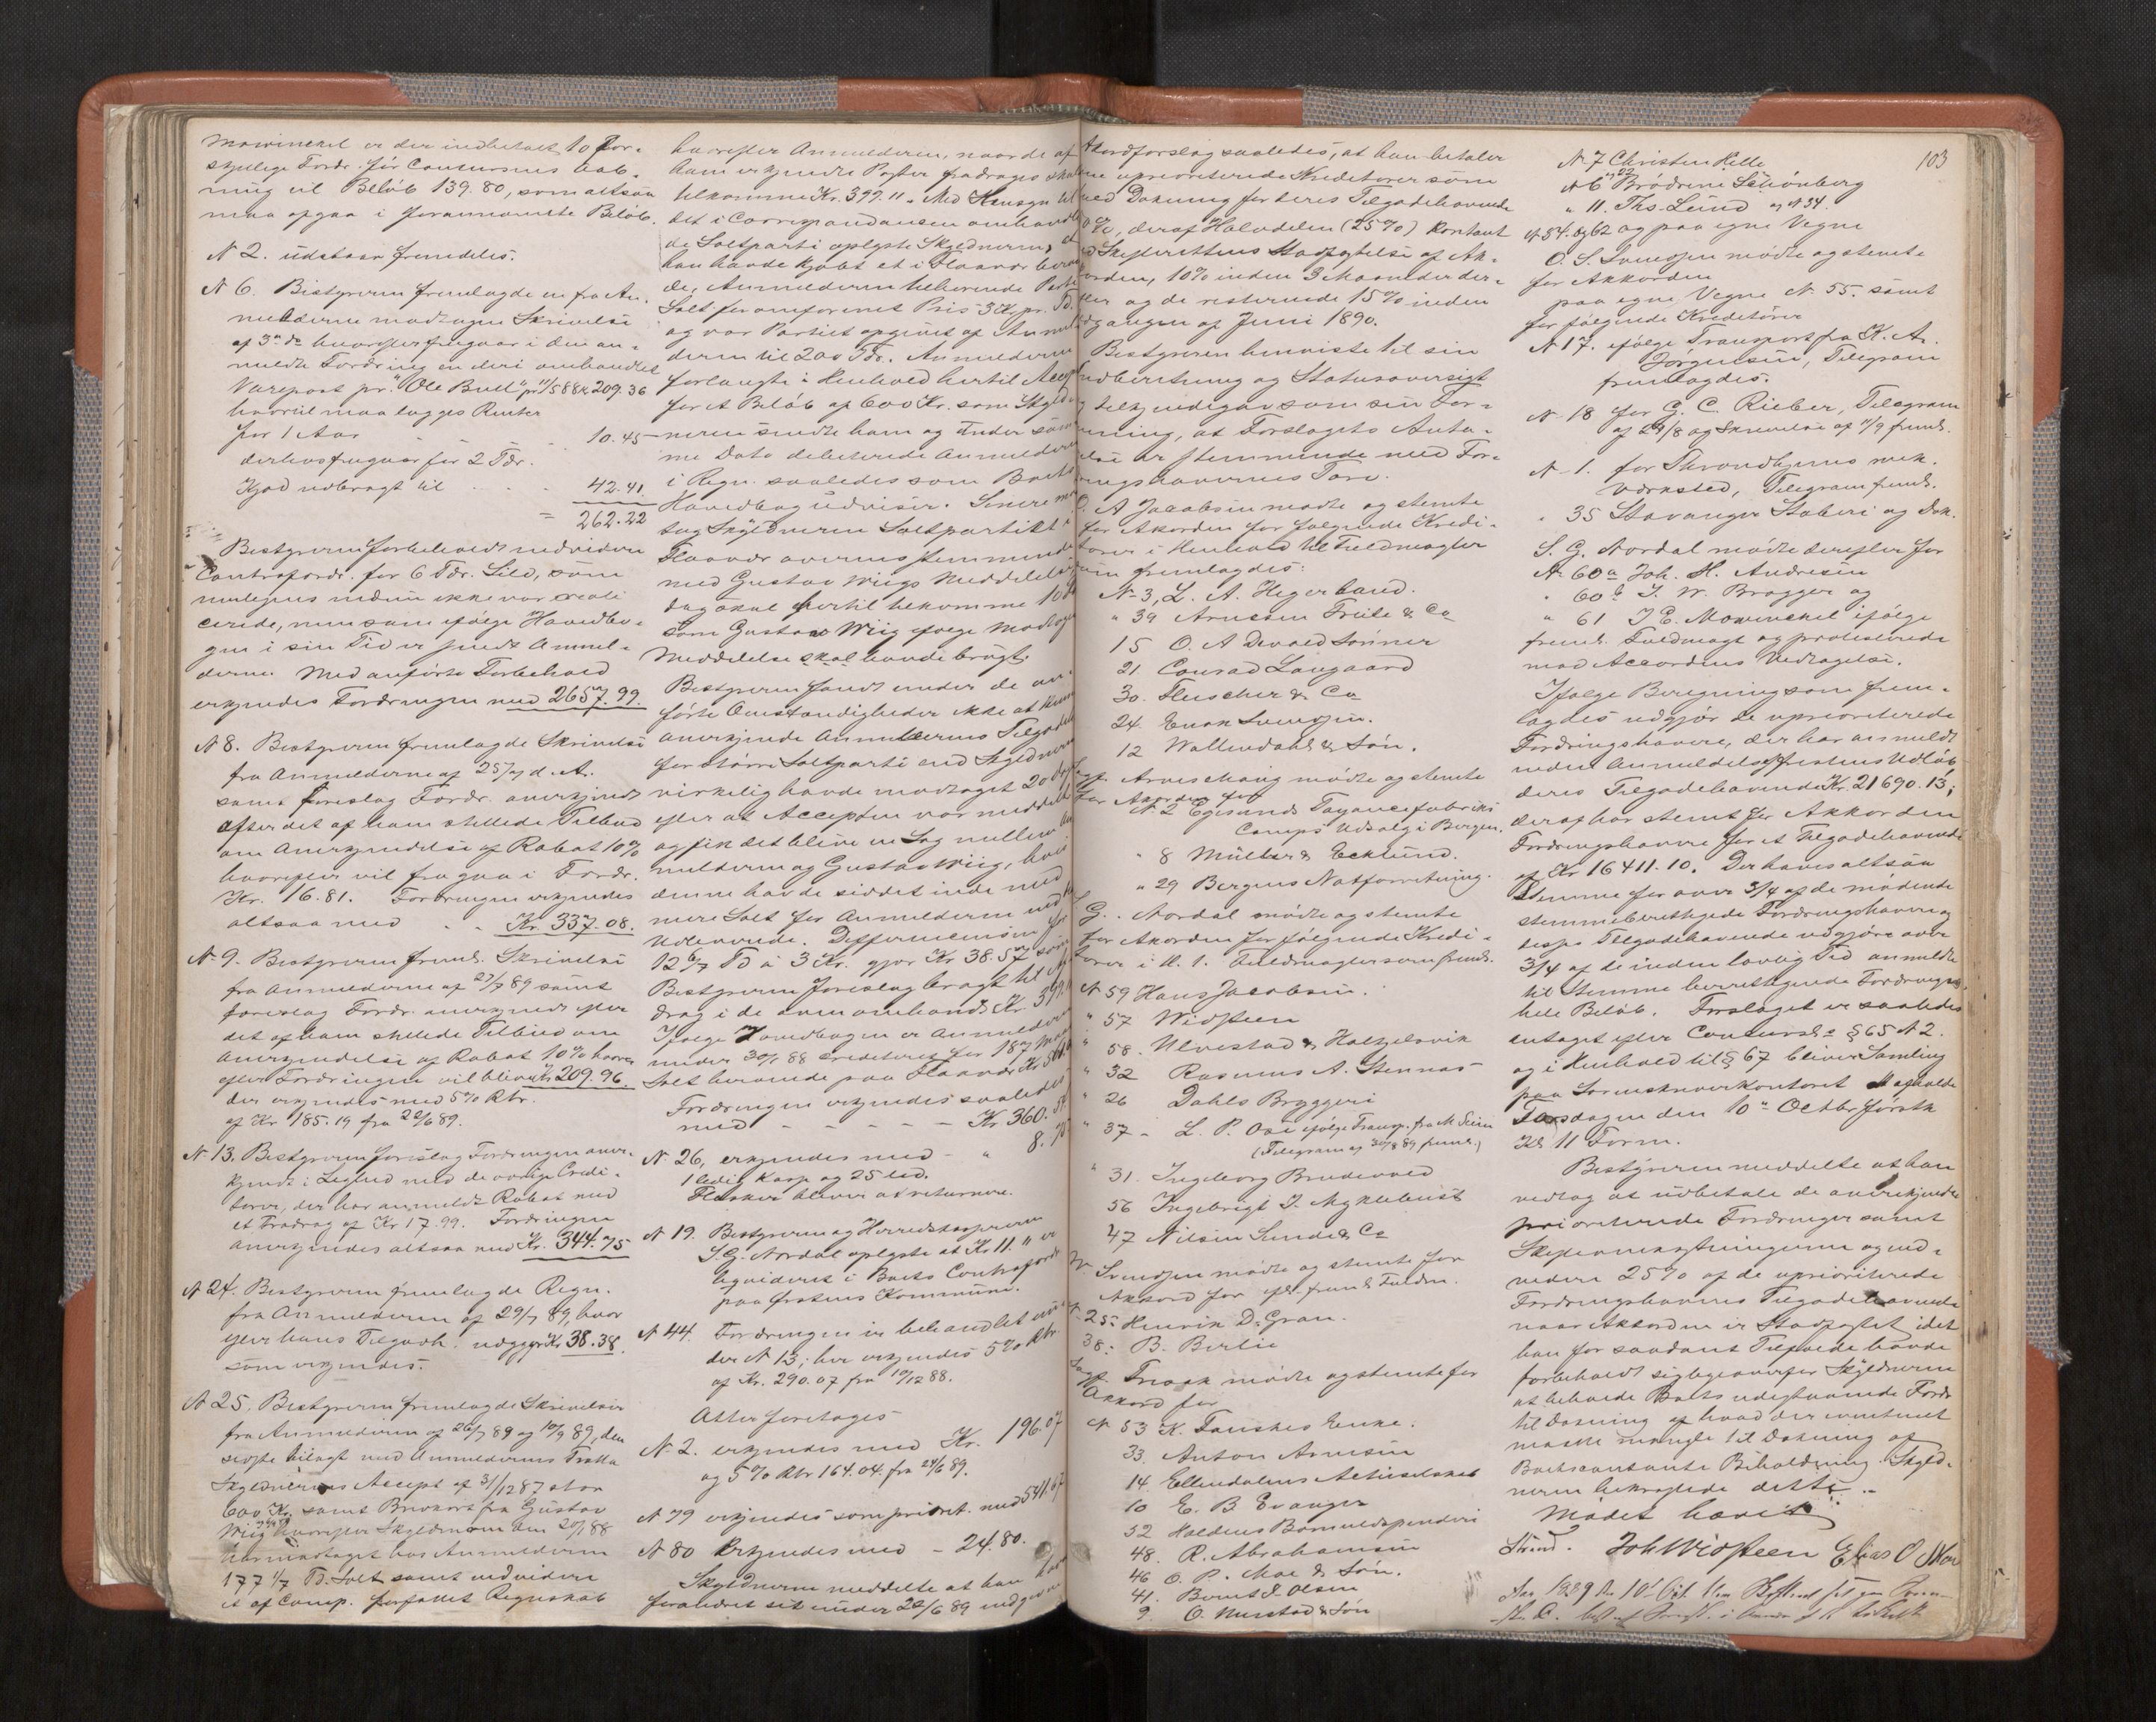 Mowinckel er der indbetalt 10 For-
skjellige Fordr. før Concursens Aab-
ning til Beløb 139.80, som altsaa
maa afgaa i forannævnte Beløb.
N 2. udstaar fremdeles.
N 6. Bestyreren fremlagde en fra An-
melderne modtagen Skrivelse
af 3die ds hvorefter fragaar i den an-
meldte Fordring en deri omhandlet
Varepost pr. "Ole Bull" pr. 11/5 88 Kr 209.36
hvortil maa lægges Renter
for 1 Aar 10.45
derhos fragaar for 2 Tdr.
Kjød udbragt til 42.41
= 262.22
Bestyreren forbeholdt endvidere
Contrafordr. for 6 Tdr. Sild, som
muligens endnu ikke var
cerede, men som ifølge Hovedbo-
gen i sin Tid er sendt Anmel-
derne. Med anførte Forbehold
erkjendes Fordringen med 2657.99.
N 8. Bestyreren fremlagde Skrivelse
fra Anmelderne af 25/7 d. A.
samt foreslog Fordr. anerkjendt
efter det af ham stillede Tilbud
om Anerkjendelse af Rabat 10%
hvorefter vil fragaa i Fordr.
Kr. 16.81. Fordringen erkjendes
altsaa med Kr. 337.08.
N 9. Bestyreren freml. Skrivelse
fra Anmelderne af 27/7 89 samt
foreslog Fordr. anerkjendt efter
det af ham stillede Tilbud om
Anerkjendelse af Rabat 10% hvor-
efter Fordringen vil blive Kr 209.96.
der erkjendes med 5% Rtr.
af Kr 185.19 fra 22/6 89.
N 13. Bestyreren foreslog Fordringen aner-
kjendt i Lighed med de øvrige Credi-
torer, der har anmeldt Rabat med
et Fradrag af Kr 17.99. Fordringen
anerkjendes altsaa med Kr. 344.75
N 24. Bestyreren fremlagde Regn.
fra Anmelderen af 29/7 89, hvor
efter hans Tilgodh. udgjør Kr 38.38.
som erkjendes.
N 25. Bestyreren fremlagde Skrivelser
fra Anmelderen af 26/7 89 og 10/9 89, den
sidste bilagt med Anmelderens Tratta
Skyldnerens Accept af 31/12 87 stor
600 Kr. samt Brevkort fra Gustav
Wiig hvorefter Skyldneren den 20/1 88
har modtaget hos Anmelderen
177 1/7 Td. Salt samt endvidere
et af Comp. forfattet Regnskab
hvorefter Anmelderen, naar de af
ham erkjendte Poster fradrages skal
tilkomme Kr. 399.11. Med Hensyn til
det i Correspondansen omhandle
de Saltparti oplyste Skyldneren, at
han havde kjøbt et i Flaavær beroen
de, Anmelderen tilhørende Parti
Salt for omforenet Pris 3 Kr. pr. Td.
og var Partiet opgivet af Anmel
deren til 200 Tdr. Anmelderen
forlangte i Henhold hertil Accept
for et Beløb af 600 Kr. som Skyld
neren sendte ham og under sam
me Dato debiterede Anmelderen
i Regn. saaledes som Boets
Hovedbog udviser. Senere mod
tog Skyldneren Saltpartiet i
Flaavær overensstemmende
med Gustav Wiigs Meddelelse
dog skal hertil bekomme
som Gustav Wiig ifølge modtagen
Meddelelse skal havde brugt.
Bestyreren fandt under de an-
førte Omstændigheder ikke at kunne
anerkjende Anmelderens Tilgode
for større Saltparti end Skyldneren
virkelig havde modtaget 20 dage
efter at Accepten var meddelt
og fik det blive en Sag mellem An
melderen og Gustav Wiig, hvis
denne havde siddet inde med
mere Salt for Anmelderen end
udleverede. Differencen for
12 6/7 Td à 3 Kr. gjør Kr 38.57 som
Bestyreren foreslog bragt til af
drag i de ovenomhandl. Kr 399.
Ifølge Hovedbogen er Anmelderen
under 30/1 88 krediteret for 187
Salt beroende paa Flaavær Kr 561.
Fordringen erkjendes saaledes
med - - - - - Kr 360.54
N 26, erkjendes med - " 8.70
1 ledig Kasse og 25 led.
Flasker bliver at returnere.
N 19. Bestyreren og Herredskassereren
S. G. Nordal oplyste at Kr 11." er
ligvideret i Boets Contrafordr
paa Ørstens Kommune.
N 44. Fordringen er behandlet un-
der N 13; her erkjendes 5% Rtr
af Kr. 290.07 fra 10/12 88.
Atter foretages
N 2. erkjendes med Kr. 196.07
og 5% Rtr 164.04. fra 24/6 89.
N 79 erkjendes som prioret. med 541.67
N 80 erkjendes med - 24.80.
Skyldneren meddelte at han har
forandret sit under 22/6 89 indgivne
103
Akordforslag saaledes, at han betaler
sine uprioriterede Kreditorer som
med Dækning for deres Tilgodehavende
50%, deraf Halvdelen (25%) kontant
ved Skifterettens Stadfæstelse af Ak-
korden, 10% inden 3 Maaneder der-
efter og de resterende 15% inden
Udgangen af Juni 1890.
Bestyreren henviste til sin
Indberetning og Statusoversigt
og tilkjendegav som sin For-
mening, at Forslagets Anta-
gelse er stemmende med For-
dringshavernes Tarv.
O. A Jacobsen mødte og stemte
for Akorden for følgende Kredi-
torer i Henhold til Fuldmagter
som fremlagdes:
N 3, L. A. Hegerland.
" 39 Arnesen Friele & Co
15 O. A Devold Sønner
21. Conrad Langaard
30. Fleischer & Co
24. Enok Svendsen.
12 Wallendahl & Søn.
Sagf. Arneschaug mødte og stemte
for Akorden for
N 2 Egersunds Fayancefabriks
Comps Udsalg i Bergen.
" 8 Müller & Ecklund.
" 29 Bergens Notforretning.
S. G. Nordal mødte og stemte
for Akorden for følgende Kredi-
torer i H. t. Fuldmagter som freml.
N 59 Hans Jacobsen.
" 57 Widsteen
" 58. Ulvestad & Koltzelsvik
" 32 Rasmus A. Stennæs
" 26 Dahls Bryggeri
" 37 - L. P. Ose ifølge Transp. fra M. Seim
(Telegram af 30/8 89 freml.)
" 31. Ingeborg Brudevold
56 Ingebrigt J. Myklebust
47 Nilsen Sunde & Co
Svendsen mødte og stemte for
Akkord for efter freml. Fuldm.
N 25: Henrik D. Gran.
38: B. Birlie
Sagf. Friaak mødte og stemte for
Akkord for
N 53 K. Fanskes Enke.
33. Anton Arnesen
14. Ellendalens Actieselskab
10 E. B Evanger
52 Haldens Bomuldspinderi
48. R. Abrahamsen
46 O. P. Moe & Søn.
41. Bernt J. Olsen
9. O. Nerstad & Søn
N 7 Christen Kelle
N 6 " 22 Brødrene Schönberg
" 11. Ths. Lund og N 34.
N 54. og 62 og paa egne Vegne
O. S. Svendsen mødte og stemte
for Akkorden
paa egne Vegne N. 55. samt
for følgende Kreditorer
N 17. ifølge Transport fra K. A.
Jørgensen, Telegram
fremlagdes.
N 18 for G. C. Rieber, Telegram
af 29/8 og Skrivelse af 11/9 freml.
N 1. for Throndhjems mek.
Værksted, Telegram freml.
" 35 Stavanger Støberi og Dok.
S. G. Nordal mødte derefter for
N 60a Joh. H. Andresen
" 60b T. W. Brøgger og
" 61 J E. Mowinckel ifølge
freml. Fuldmagt og protesterede
mod Accordens Vedtagelse.
Ifølge Beregning som frem-
lagdes udgjør de uprioriterede
Fordringshavere, der har anmeldt
inden Anmeldelsesfristens Udløb
deres Tilgodehavende Kr. 21690.13;
deraf har stemt for Akkorden
Fordringshavere for et Tilgodehavende
af Kr 16411.10. Der haves altsaa
Stemme for over 3/4 af de mødende
stemmeberettigede Fordringshavere og
disses Tilgodehavende udgjøre over
3/4 af de inden lovlig Tid anmeldte
til Stemme berettigende Fordringers
hele Beløb. Forslaget er saaledes
antaget efter Concursl.s § 65 N 2.
og i Henhold til § 67 bliver Samling
paa Sorenskriverkontoret at afholde
Torsdagen den 10de Octbr førstk
Kl 11 Form.
Bestyreren meddelte at han
vedtog at udbetale de anerkjendte
prioriterede Fordringer samt
Skifteomkostningerne og end-
videre 25% af de uprioriterede
Fordringshaveres Tilgodehavende
naar Akkorden er Stadfæstet, idet
han for saadant Tilfælde havde
forbeholdt sig ligeoverfor Skyldneren
at beholde Boets udestaaende Fordr.
til Dækning af hvad der eventuelt
maatte mangle til Dækning af
Boets contante Beholdning. Skyld-
neren bekræftede dette. -
Mødet hævet.
Strand. Joh Widsteen Elias O Moe
Aar 1889 den 10de Oct.